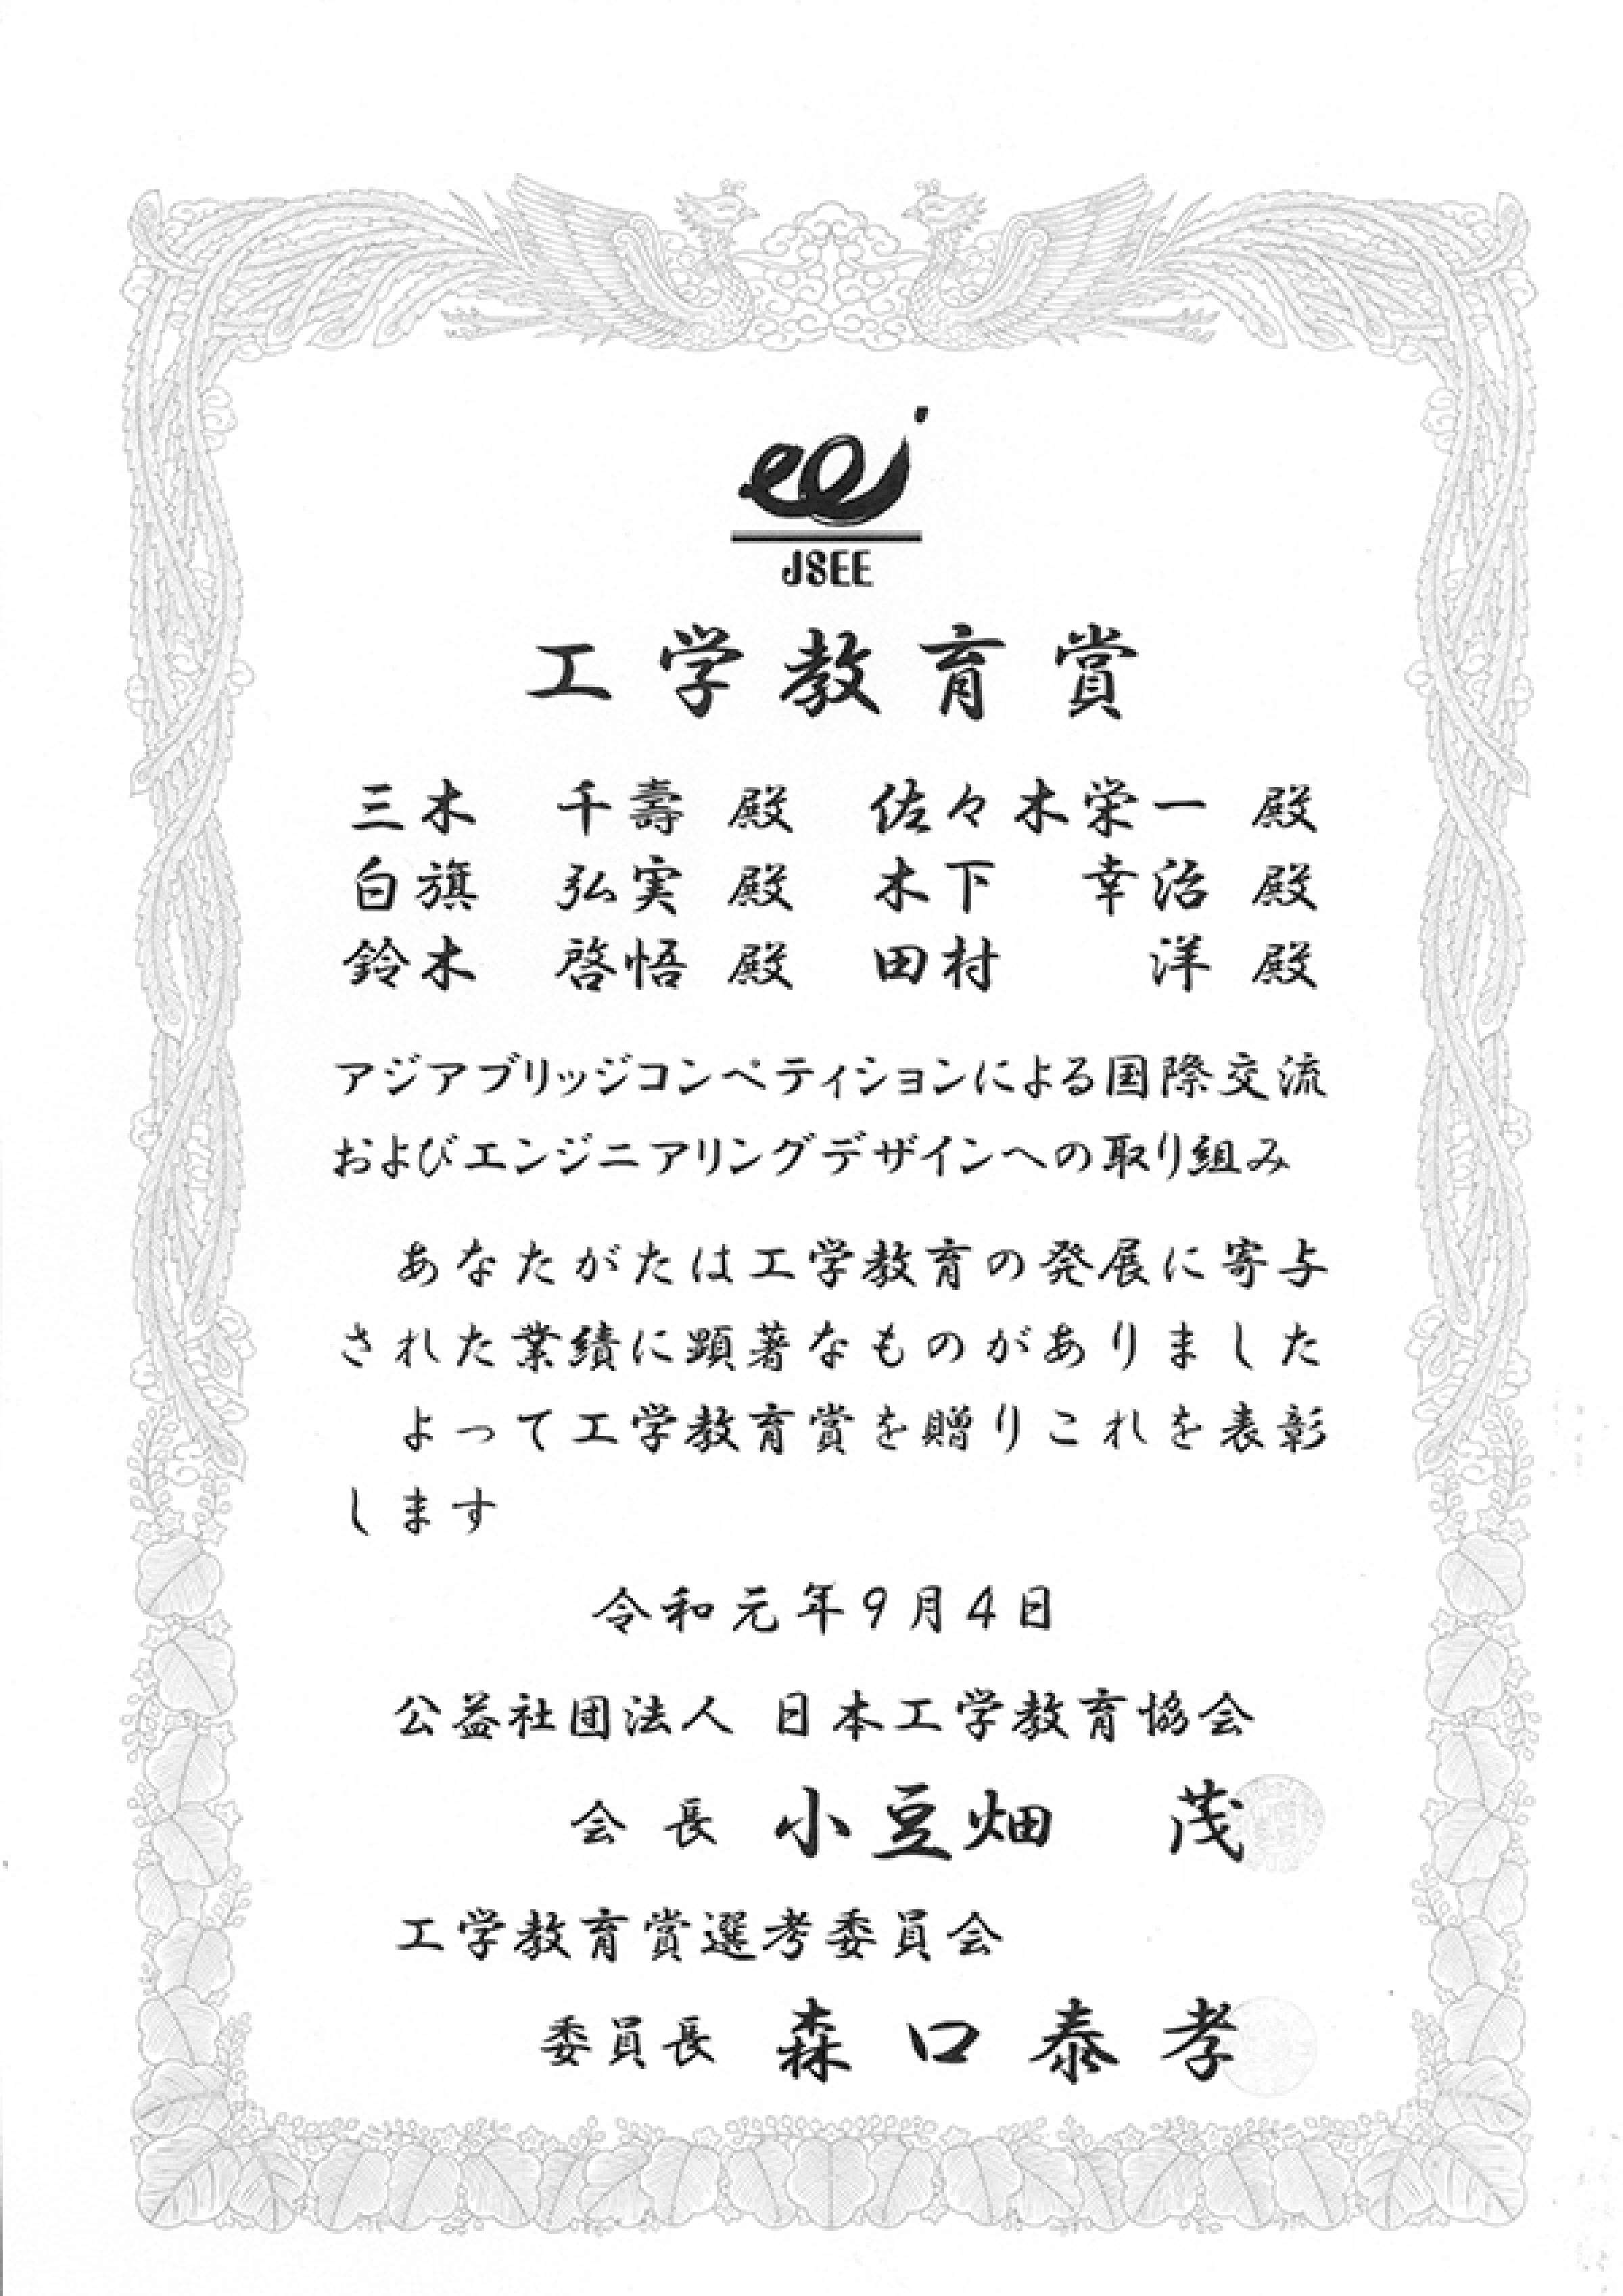 eej
JSEE
工学教育賞
三木　千壽 殿　佐々木栄一 殿
白旗　弘実 殿　木下　幸治 殿
鈴木　啓悟 殿　田村　洋 殿
アジアブリッジコンペティションによる国際交流
およびエンジニアリングデザインへの取り組み
あなたがたは工学教育の発展に寄与
された業績に顕著なものがありました
よって工学教育賞を贈りこれを表彰
します
令和元年9月4日
公益社団法人 日本工学教育協会
会長 小豆畑　茂
工学教育賞選考委員会
委員長 森口泰孝